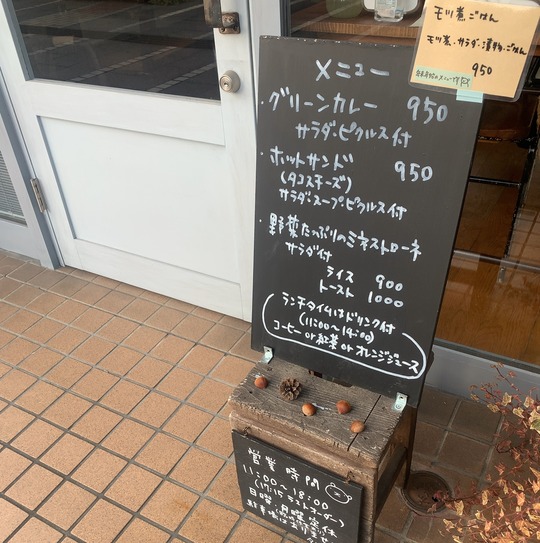 モツ煮ごはん
モツ煮・サラダ・漬物・ごはん
950
メニュー
・グリーンカレー 950
サラダ・ピクルス付
・ホットサンド 950
(タコスチーズ)
サラダ・スープ・ピクルス付
・野菜たっぷりのミネストローネ
サラダ付
ライス 900
トースト 1000
ランチタイムはドリンク付
(11:00~14:00)
コーヒー or 紅茶 or オレンジジュース
営業時間
11:00~18:00
(17:15 ラストオーダー)
日曜 月曜 定休